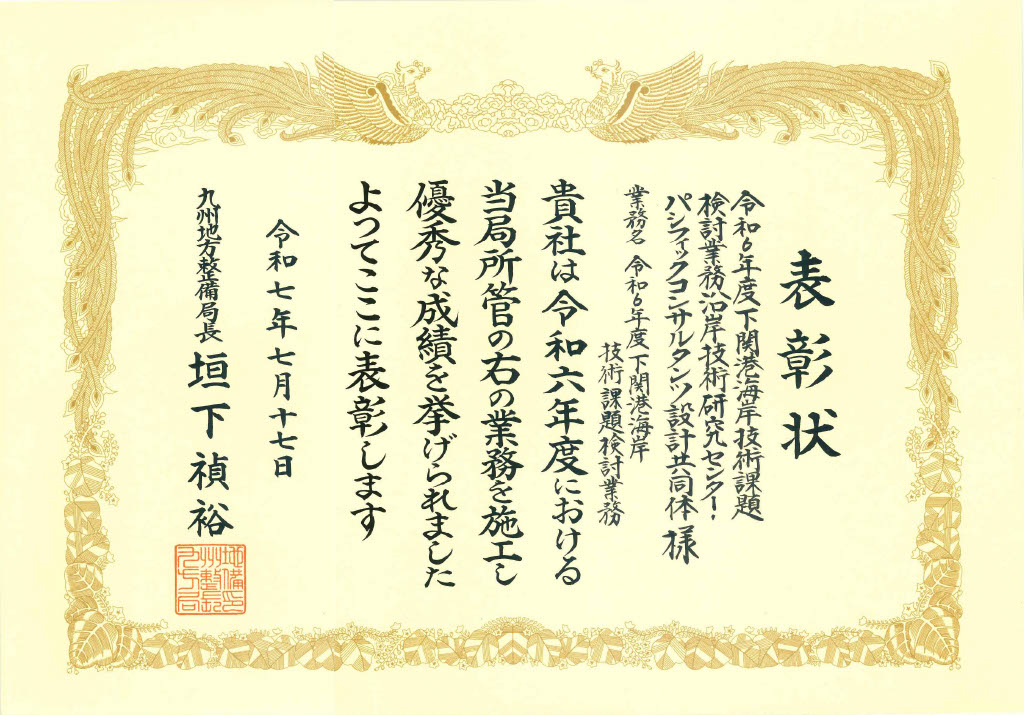 表彰状
令和6年度下関港海岸技術課題
検討業務沿岸技術研究センター・
パシフィックコンサルタンツ設計共同体 様
業務名 令和6年度下関港海岸
技術課題検討業務
貴社は令和六年度における
当局所管の右の業務を施工し
優秀な成績を挙げられました
よってここに表彰します
令和七年七月十七日
九州地方整備局長 垣下禎裕